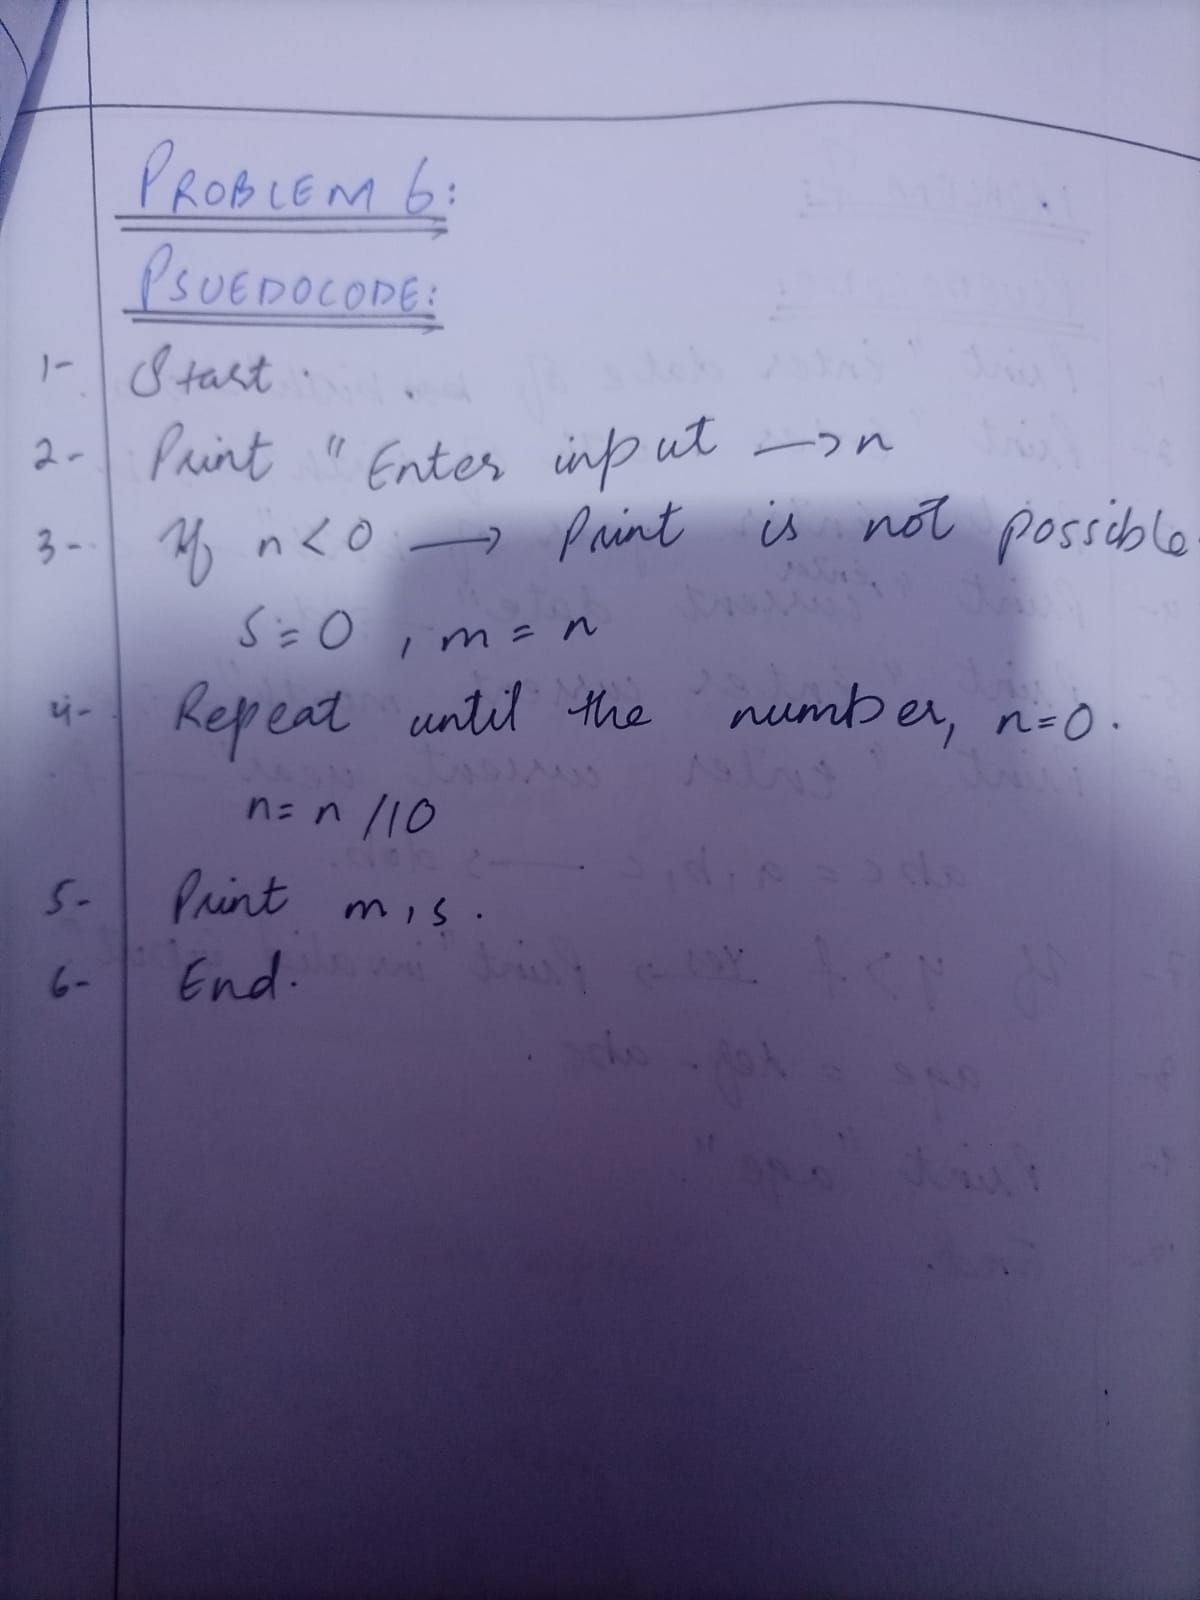 PROBLEM 6:
PSUEDOCODE:
1- Start.
2- Print "Enter input →n
3- If n<0 → Print is not possible.
S=0, m=n
4- Repeat until the number, n=0.
n=n/10
5- Print m,s.
6- End.